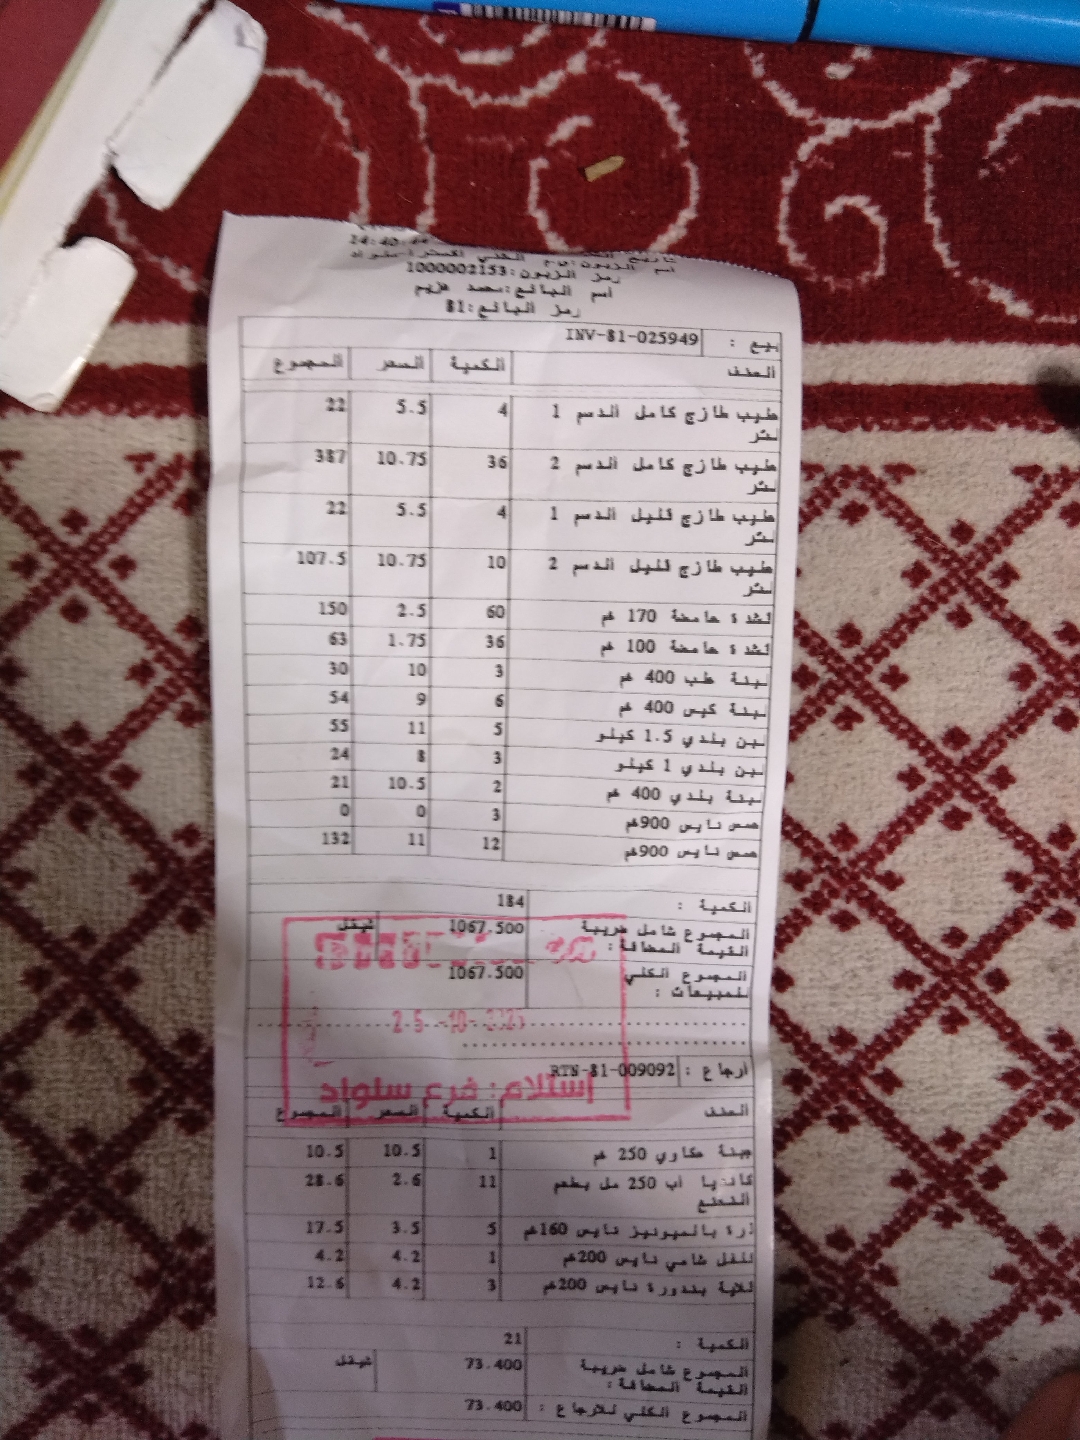 14:40:44
اسم الزبون: الغني اكسترا-سلواد
رمز الزبون:1000002153
اسم البائع:محمد هريم
رمز البائع:81
بيع : INV-81-025949
الصنف الكمية السعر المجموع
حليب طازج كامل الدسم 1 4 5.5 22
لتر
حليب طازج كامل الدسم 2 36 10.75 387
لتر
حليب طازج قليل الدسم 1 4 5.5 22
لتر
حليب طازج قليل الدسم 2 10 10.75 107.5
لتر
قشدة حامضة 170 غم 60 2.5 150
قشدة حامضة 100 غم 36 1.75 63
لبنة علب 400 غم 3 10 30
لبنة كيس 400 غم 6 9 54
لبن بلدي 1.5 كيلو 5 11 55
لبن بلدي 1 كيلو 3 8 24
لبنة بلدي 400 غم 2 10.5 21
حمص نايس 900غم 3 0 0
حمص نايس 900غم 12 11 132
الكمية : 184
المجموع شامل ضريبة 1067.500 شيقل
القيمة المضافة :
المجموع الكلي 1067.500
للمبيعات :
أرجاع : RTN-81-009092
استلام: فرع سلواد
الصنف الكمية السعر المجموع
جبنة عكاوي 250 غم 1 10.5 10.5
كانديا أب 250 مل بطعم 11 2.6 28.6
النعنع
ذرة بالميونيز نايس 160غم 5 3.5 17.5
فلفل شامي نايس 200غم 1 4.2 4.2
قلاية بندورة نايس 200غم 3 4.2 12.6
الكمية : 21
المجموع شامل ضريبة 73.400 شيقل
القيمة المضافة :
المجموع الكلي للارجاع : 73.400